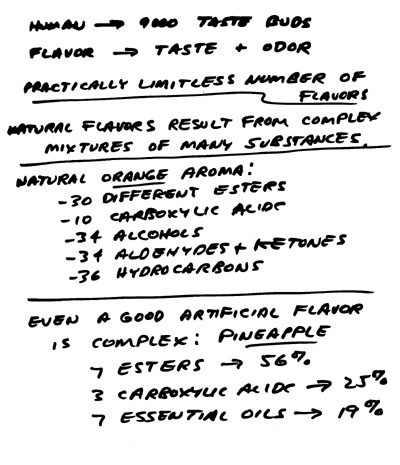 HUMAN → 9000 TASTE BUDS
FLAVOR → TASTE + ODOR
PRACTICALLY LIMITLESS NUMBER OF
FLAVORS
NATURAL FLAVORS RESULT FROM COMPLEX
MIXTURES OF MANY SUBSTANCES.
NATURAL ORANGE AROMA:
-30 DIFFERENT ESTERS
-10 CARBOXYLIC ACIDS
-34 ALCOHOLS
-34 ALDEHYDES + KETONES
-36 HYDROCARBONS
EVEN A GOOD ARTIFICIAL FLAVOR
IS COMPLEX: PINEAPPLE
7 ESTERS → 56%
3 CARBOXYLIC ACIDS → 25%
7 ESSENTIAL OILS → 19%